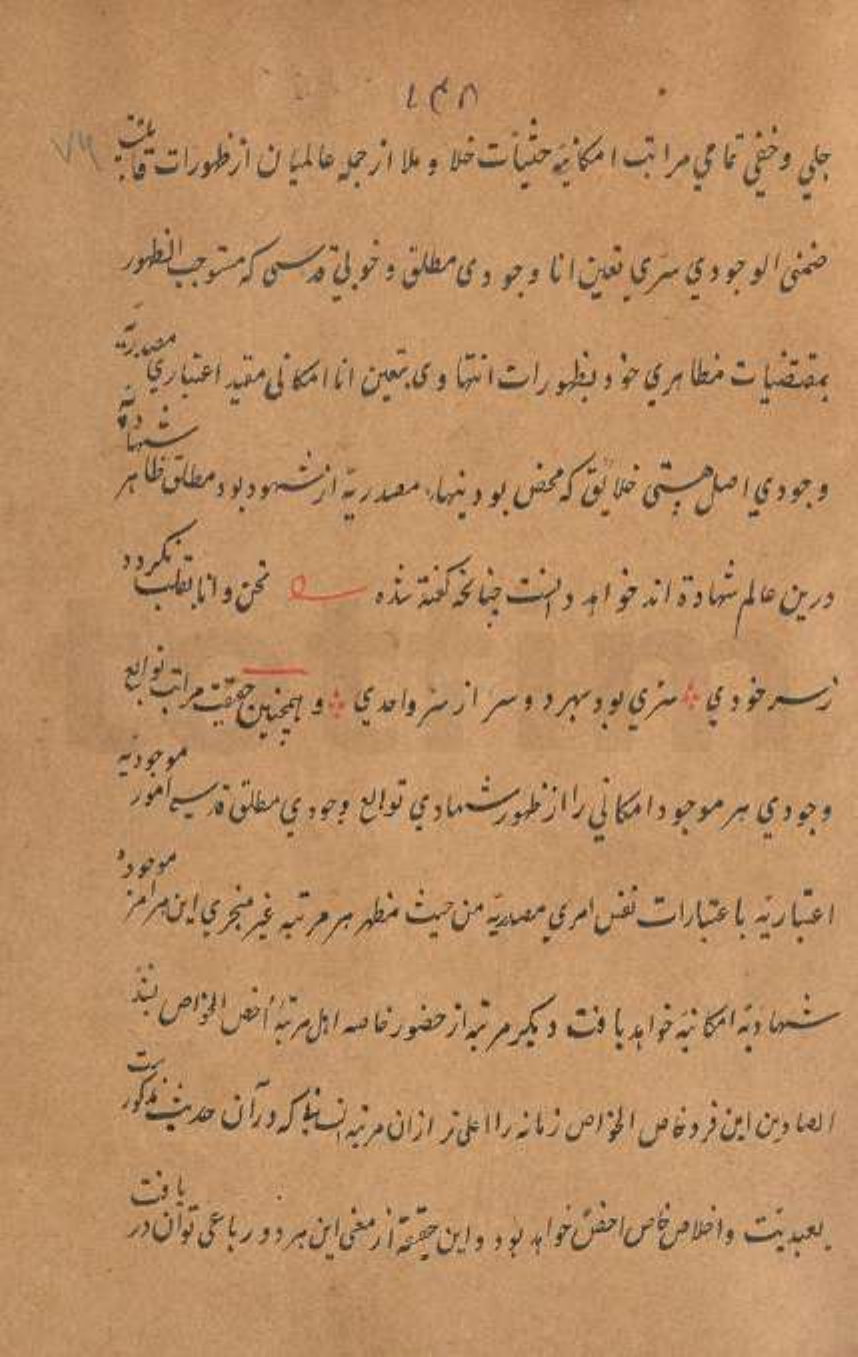 ۱۳۸
۷۴
جلي و خفي تمامي مراتب امكانيهٔ حثيأت خلا و ملا از جمله عالميان از ظهورات قابليت
ضمنى الوجودي سري تعين انا وجودى مطلق و خوبي قدسى كه مستوجب الظهور
بمقتضيات مظاهري خود بظهورات انتهاوى بتعين انا امكانى مقيد اعتباري مصدريّه
وجودي اصل هستى خلايق كه محض بود بنهاء مصدريّه از شهود بود مطلق ظاهر شهادتيه
درين عالم شهادة اند خواهد دانست چنانچه كفته شده نحن و انا بقلب نكردد
ز سر خودي سري بود بهر دو سر از سر واحدي و همچنين حقيقت مراتب توابع
وجودي هر موجود امكاني را از ظهور شهادي توابع وجودي مطلق قدسيه امور موجوديه
اعتباريه باعتبارات نفس امري مصدريّه من حيث مظهر هر مرتبه غير منجري اين مرامز موجوده
شهاديهٔ امكانيه خواهد يافت ديكر مرتبه از حضور خاصه اهل مرتبهٔ أخص الخواص بند
الصادين اين فرد خاص الخواص زمانه را اعلى تر ازان مرتبه است كه در آن حديث مذكور
بعبديت و اخلاص خاص احفض خواهد بود و اين حقيقة از معنى اين هر دو رباعى توان دريافت